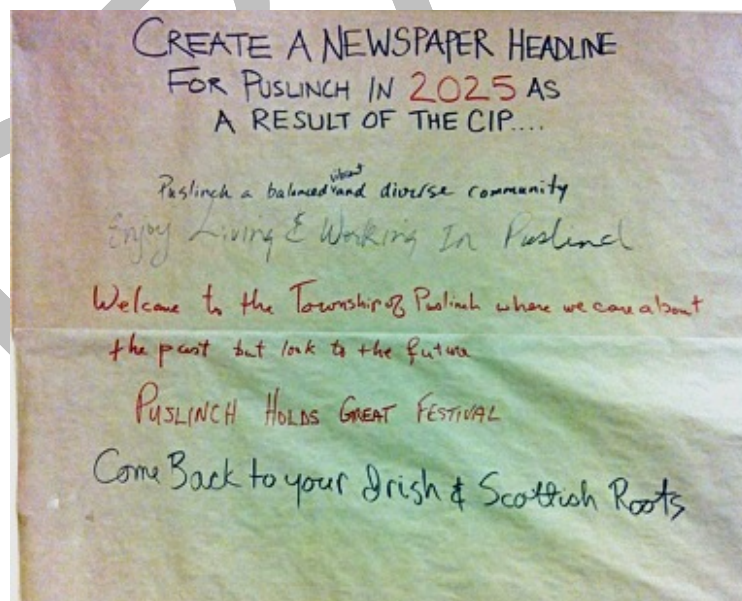 CREATE A NEWSPAPER HEADLINE
FOR PUSLINCH IN 2025 AS
A RESULT OF THE CIP....
Puslinch a balanced vibrant and diverse community
Enjoy Living & Working In Puslinch
Welcome to the Township of Puslinch where we care about
the past but look to the future
PUSLINCH HOLDS GREAT FESTIVAL
Come Back to your Irish & Scottish Roots